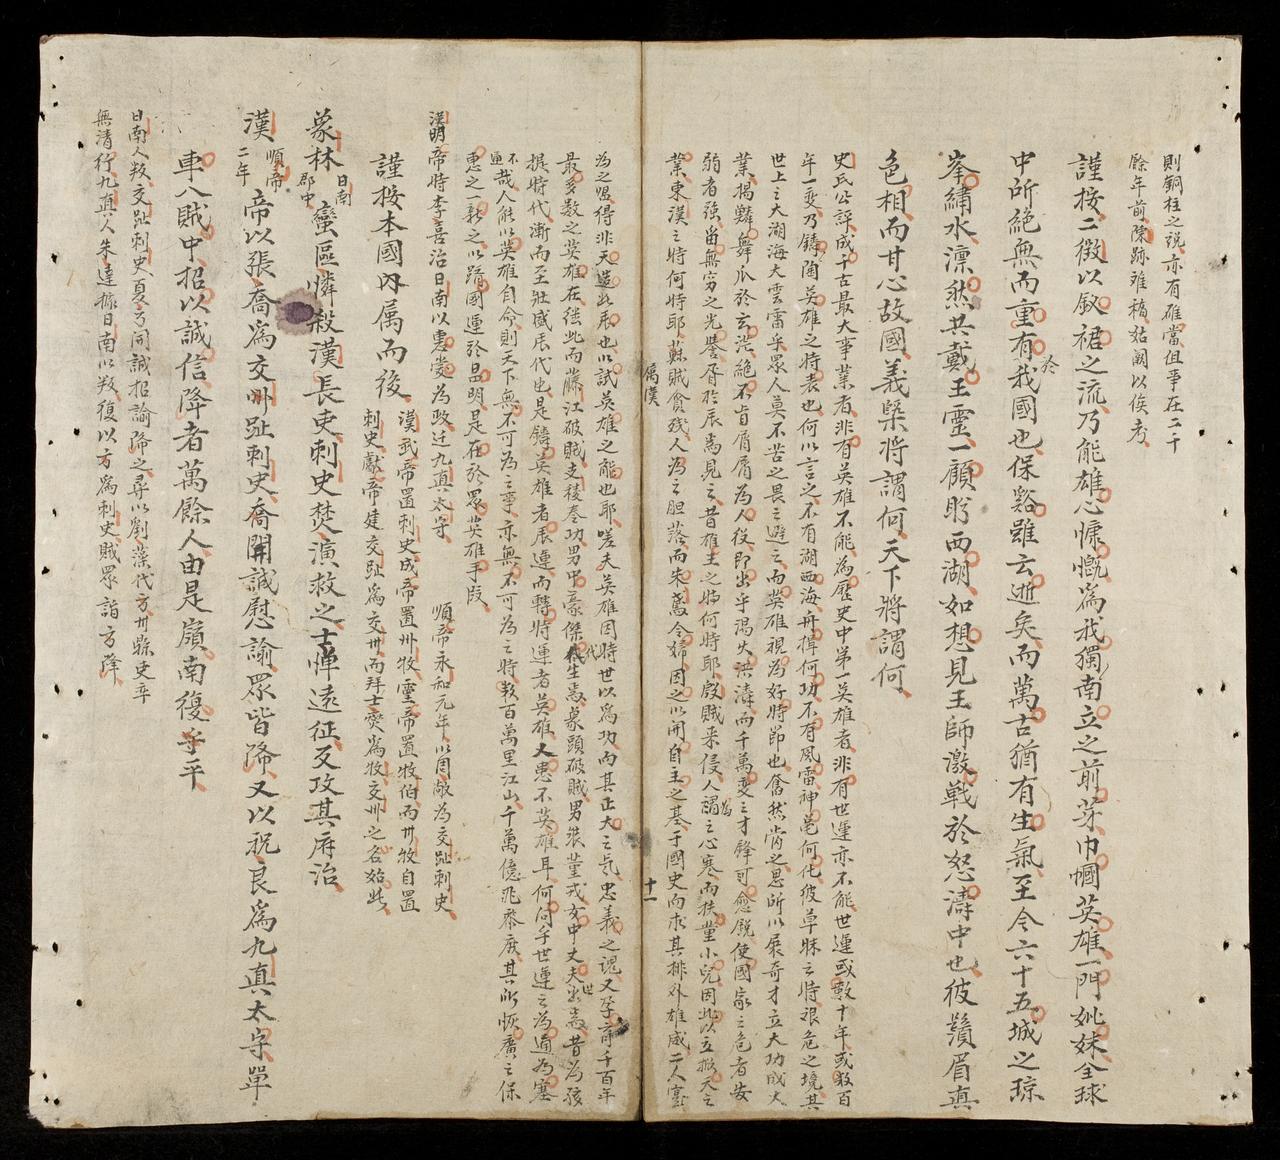 則銅柱之説亦有確當但事在二千
餘年前陳跡难稿姑闕以俟考
謹按二徵以釵裙之流乃能雄心慷慨爲我獨南立之前芽巾幗英雄一門姊妹全球
中所絶無而重有於我國也保谿雖云逝矣而萬古猶有生氣至今六十五城之琼
峯繡水凛然共戴王靈一顧盻西湖如想見王師激戰於怒濤中也彼鬚眉真
色相而甘心故國義槩將謂何天下將謂何
史氏公評成千古最大事業者非有英雄不能為歷史中第一英雄者非有世運亦不能世運或數十年或数百
年一變乃鑄陶英雄之特表也何以言之不有湖西海舟楫何功不有風雷神黾何化彼草昧之時艰危之境其
世上之大湖海大雲雷乎眾人莫不苦之畏之避之而英雄視為好時節也奮然當之思所以展奇才立大功成大
業揭麟舞爪於玄茫絶不肯屑屑為人役即出乎渴火洪濤而千萬变之才鋒可愈鋭使國家之危者安
弱者強留無穷之光譽胥於辰焉見之昔雄王之時何時耶殷賊來侵人謂為之心寒而扶董小兒因此以立掀天之
業東漢之時何時耶蘇賊貪残人為之胆落而朱鳶令婦因之以開自主之基于國史向求其排外雄威二人寔
屬漢
十一
為之嚆得非天造此辰也以試英雄之能也耶嗟夫英雄因時世以爲功而其正大之氣忠義之魂又孕育千百年
最多数之英雄在後此而藤江破賊支稜奏功男中豪傑代生焉象頭破賊男裝董戎女中丈夫世出焉昔為孩
提時代漸而至壯盛辰代也是鑄英雄者辰運而轉時運者英雄人患不英雄耳何問乎世運之為通為塞
不通哉人能以英雄自命則天下無不可為之事亦無不可為之時数百萬里江山千萬億兆黎庶其所恢廣之保
惠之一新之以躋國運於昌明是在於眾英雄手段
漢明帝時李喜治日南以惠爱為政迁九真太守 順帝永和元年以周敞為交趾刺史
謹按本國内属而後漢武帝置刺史成帝置州牧靈帝置牧伯而州牧自置
刺史獻帝建交趾爲交州而拜士燮爲牧交州之名始此
象林日南郡中蠻區憐殺漢長吏刺史焚演救之士憚遠征反攻其府治
漢順帝二年帝以張喬爲交州趾刺史喬開誠慰諭眾皆降又以祝良爲九真太守單
車入賊中招以誠信降者萬餘人由是嶺南復平
日南人叛交趾刺史夏方開誠招諭降之尋以劉藻代方州縣吏卒
無清行九真人朱達據日南以叛復以方爲刺史賊眾詣方降